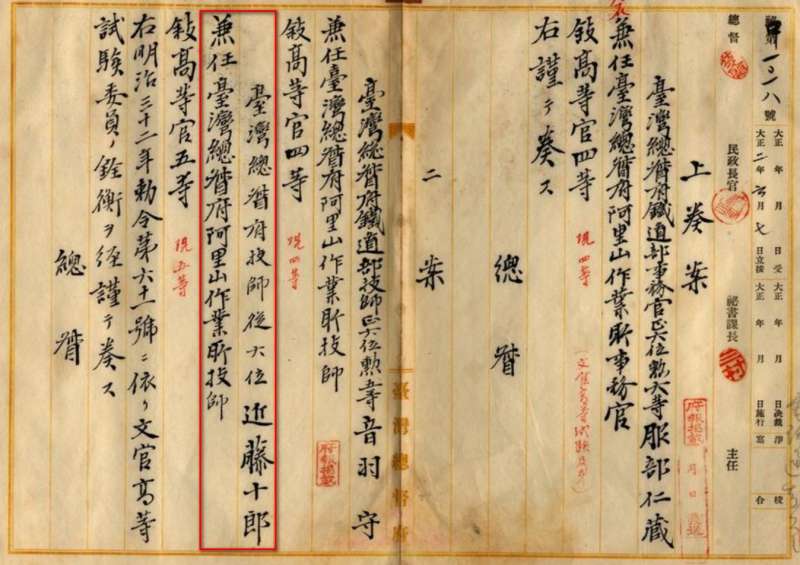 一〇一八號
總督
大正 年 月 日受
大正 年 月 日決裁
大正二年六月七日立按
大正 年 月 日施行
民政長官
祕書課長
主任
上奏案
臺灣總督府鐵道部事務官正六位勲六等服部仁藏
兼任臺灣總督府阿里山作業所事務官
敍高等官四等
現四等
右謹テ奏ス
總督
二案
臺灣總督府
臺灣總督府鐵道部技師正六位勲五等音羽守
兼任臺灣總督府阿里山作業所技師
敍高等官四等
現四等
臺灣總督府技師從六位近藤十郎
兼任臺灣總督府阿里山作業所技師
敍高等官五等
現五等
右明治三十二年勅令第六十一號ニ依リ文官高等
試驗委員ノ銓衡ヲ經謹テ奏ス
總督